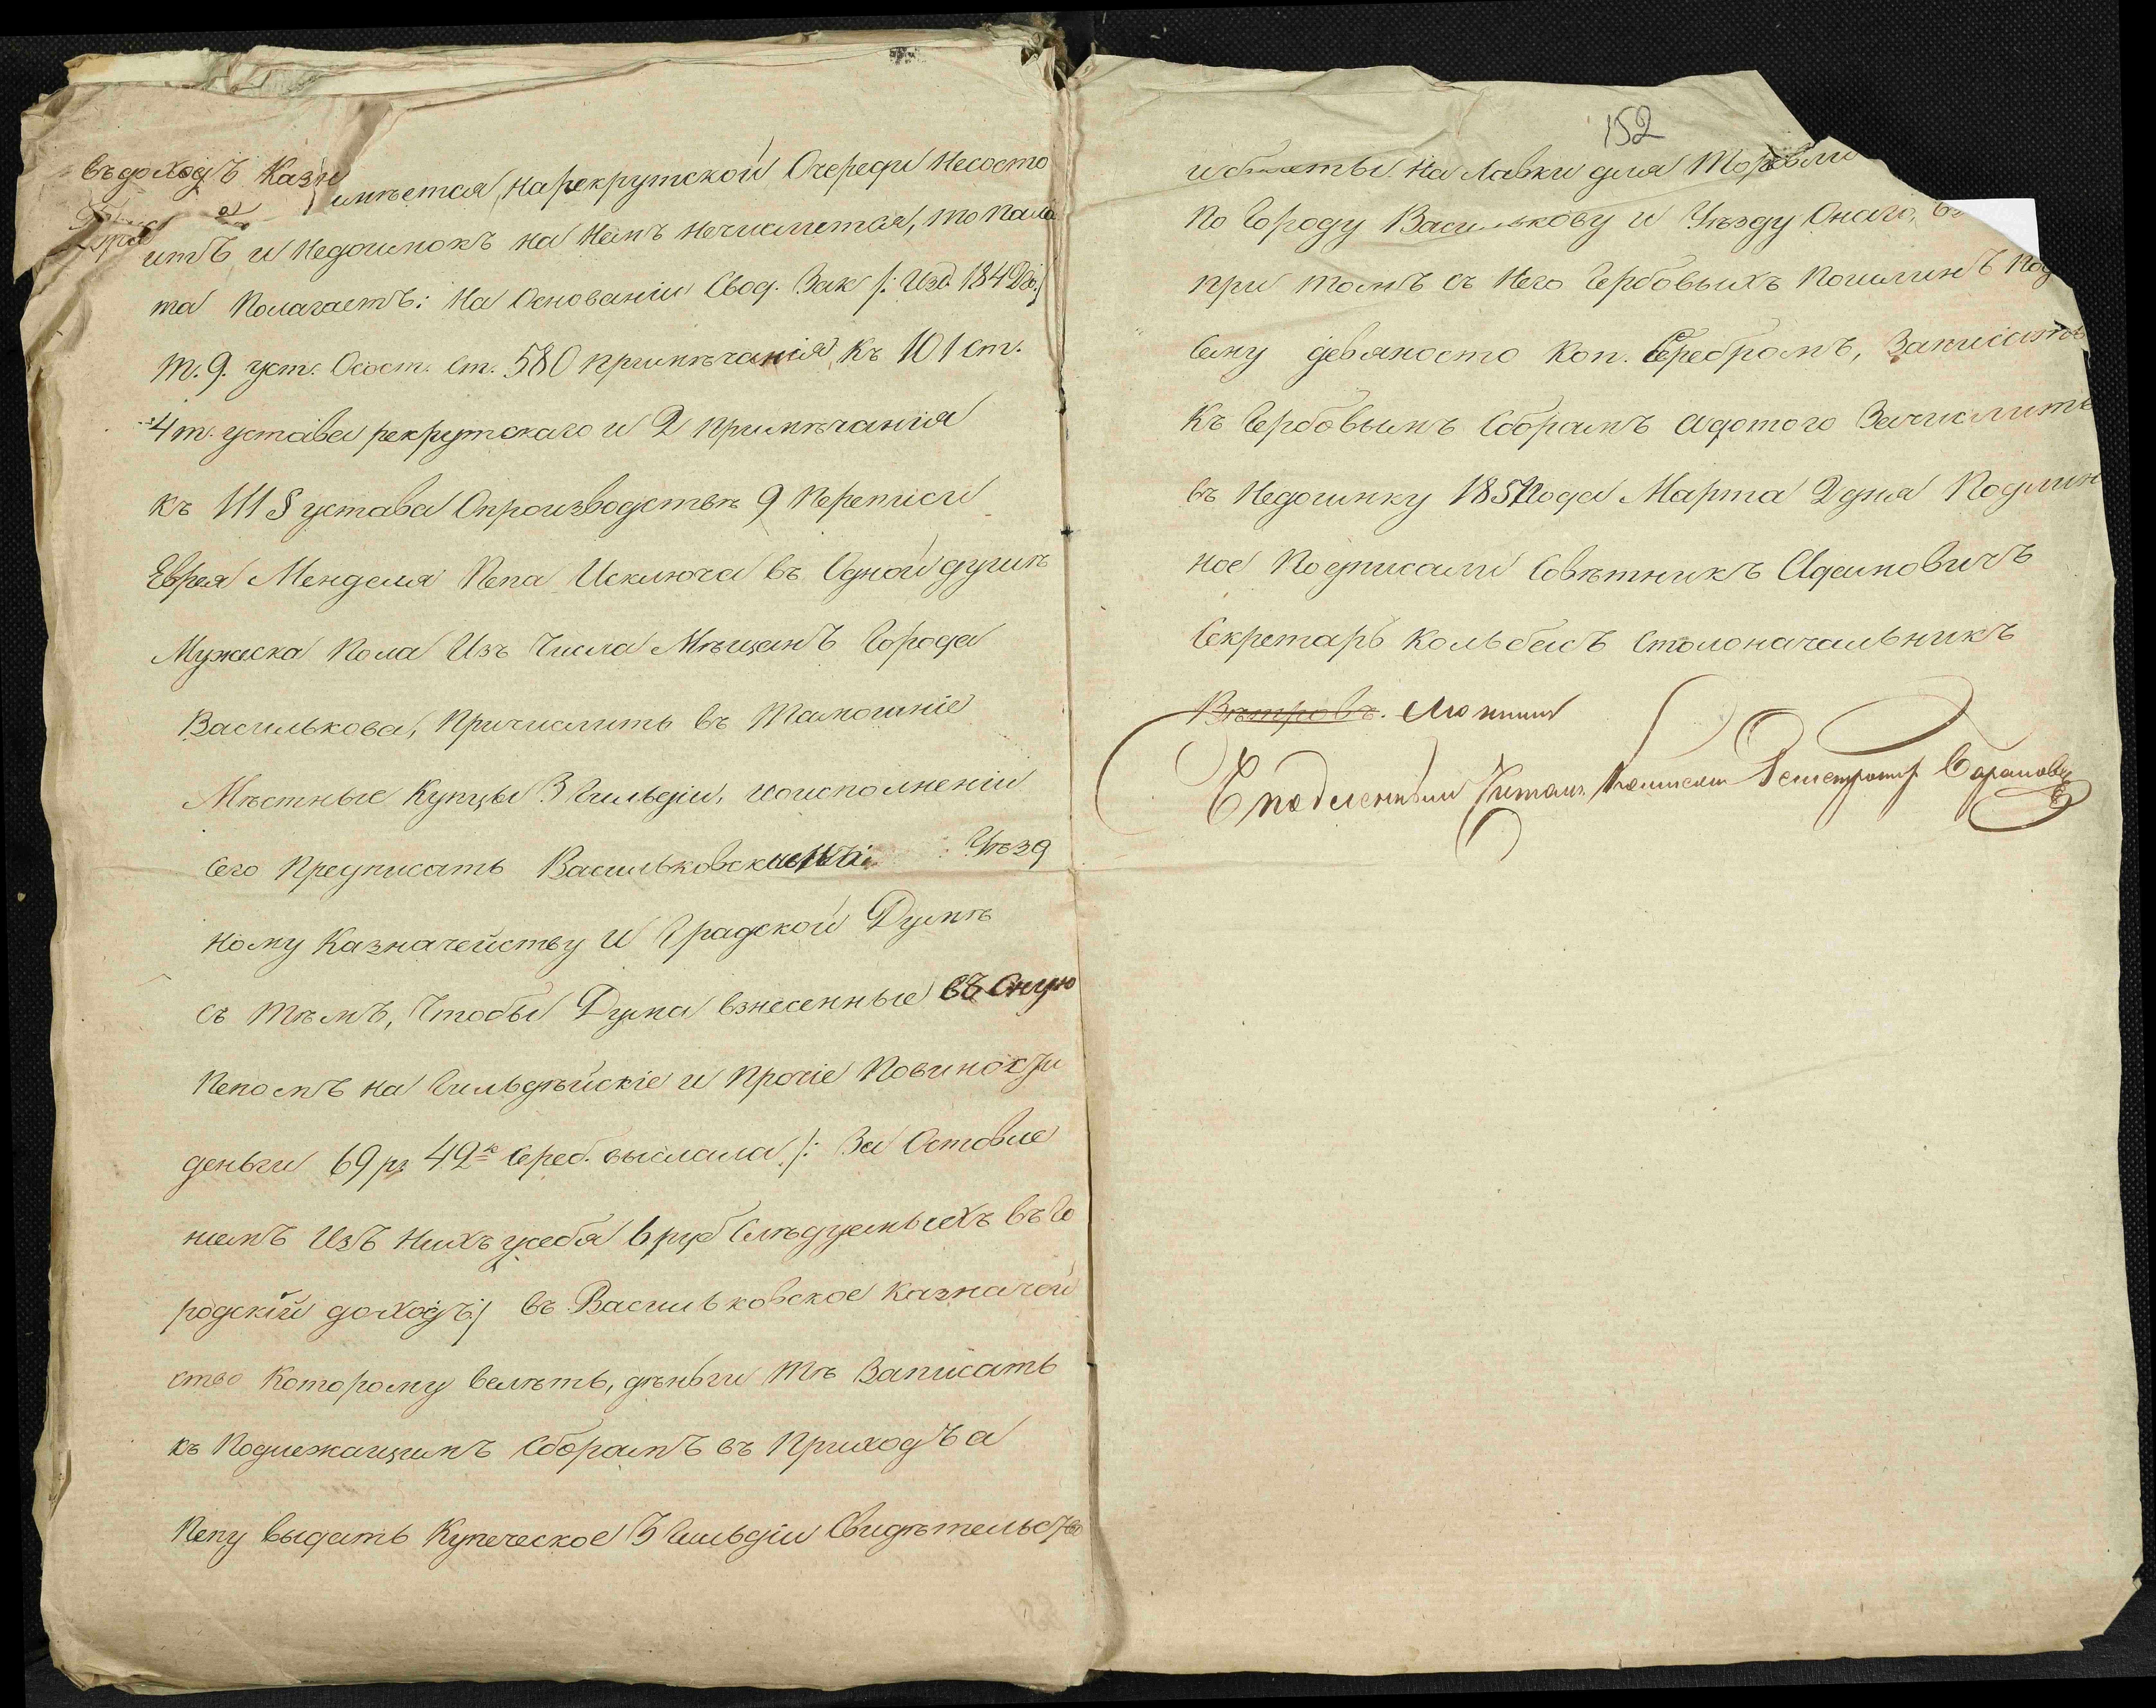 въ доходъ Казн
имѣется, на рекрутской Очереди Несосто
итъ и Недоимокъ на Немъ Нечислится, то Пала
та Полагаетъ: На Основаніи Свод. Зак /: Изд. 1842 го:/
т. 9. уст. Осост. ст. 580 примѣчанія, къ 101 ст.
4 т. устава рекрутскаго и 2 примѣчанія
къ 111 § устава Опроизводствѣ 9 Переписи
Еврея Менделя Пепа Исключа въ Одной душѣ
Мужеска Пола Изъ Числа Мѣщанъ Города
Василькова, Причислить въ Тамошніе
Мѣстные Купцы 3 Гильдіи, и оисполненіи
Сего Предписать Васильковск Уѣзд
ному Казначейству и Градской Думѣ
съ тѣмъ, Чтобы Дума взнесенные въ Оную
Пепомъ на Гильдѣйскіе и Прочіе Повинности
деньги 69 р 42 к Сереб. выслала /: За Оставле
ніемъ Изъ Нихъ усебя 6 руб Слѣдуемыхъ въ Го
родскій доходъ :/ въ Васильковское Казначей
ство Которому велѣть, дѣньги Тѣ Записать
къ Подлежащимъ Сборамъ въ Приходъ а
Пепу выдать Купеческое 3 Гильдіи Свидѣтельство
152
и билеты На Лавки для Торговли
По Городу Василькову и Уѣзду Онаго,
при томъ съ Него Гербовыхъ Пошлинъ Под
Сему девяносто Коп. Серебромъ, Записать
Къ Гербовымъ Сборамъ Адотого Зачислить
въ Недоимку 1851 года Марта 2 дня Подлин
ное Подписали Совѣтникъ Адамовичъ
Секретарь Кольбасъ Столоначальникъ
Вѣтровъ.
Съ подлиннымъ Читалъ Регистраторъ